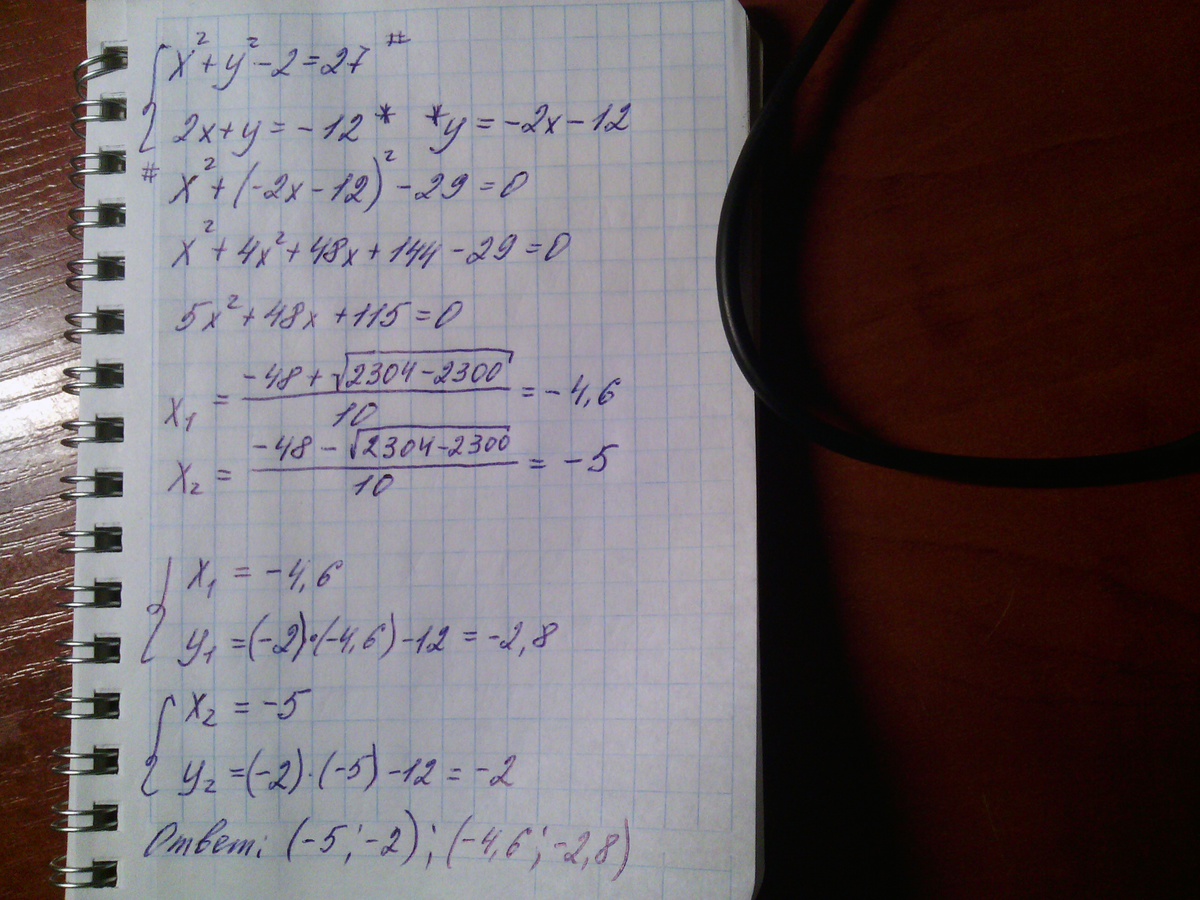 x² + y² - 2 = 27 #
2x + y = -12 * *y = -2x - 12
# x² + (-2x - 12)² - 29 = 0
x² + 4x² + 48x + 144 - 29 = 0
5x² + 48x + 115 = 0
x₁ = (-48 + √(2304 - 2300)) / 10 = -4,6
x₂ = (-48 - √(2304 - 2300)) / 10 = -5
{ x₁ = -4,6
y₁ = (-2)·(-4,6) - 12 = -2,8
{ x₂ = -5
y₂ = (-2)·(-5) - 12 = -2
Ответ: (-5; -2); (-4,6; -2,8)